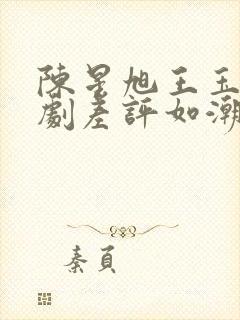 陳星旭王玉
劇差評如潮
秦頁